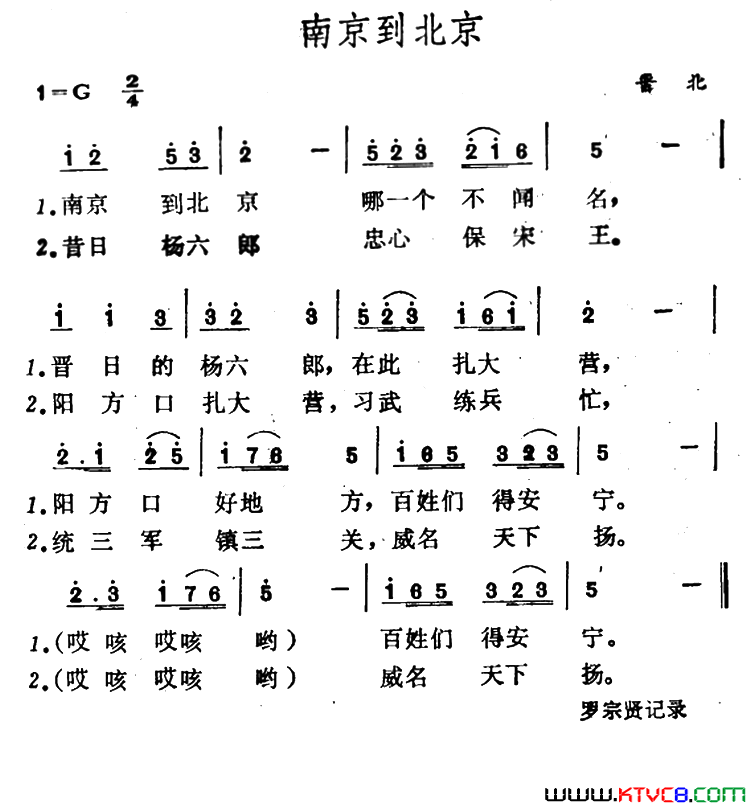 南京到北京
1=G 2/4
晋 北
1̇ 2̇ 5̇ 3̇ | 2̇ — | 5̇ 2̇ 3̇ 2̇ 1̇ 6 | 5 — |
1.南京 到北 京 哪一个 不 闻 名，
2.昔日 杨六 郎 忠心 保 宋 王。
1̇ 1̇ 3̇ | 3̇ 2̇ 3̇ | 5̇ 2̇ 3̇ 1̇ 6 1̇ | 2̇ — |
1.晋 日 的 杨六 郎，在此 扎大 营，
2.阳 方 口 扎大 营，习武 练兵 忙，
2̇ . 1̇ 2̇ 5̇ | 1̇ 7 6 5 | 1̇ 6 5 3 2 3 | 5 — |
1.阳 方 口 好地 方，百姓们 得安 宁。
2.统 三 军 镇三 关，威名 天下 扬。
2̇ . 3̇ 1̇ 7 6 | 5̇ — | 1̇ 6 5 3 2 3 | 5 — ‖
1.(哎 咳 哎咳 哟) 百姓们 得安 宁。
2.(哎 咳 哎咳 哟) 威名 天下 扬。
罗宗贤记录
www.KTVC8.com